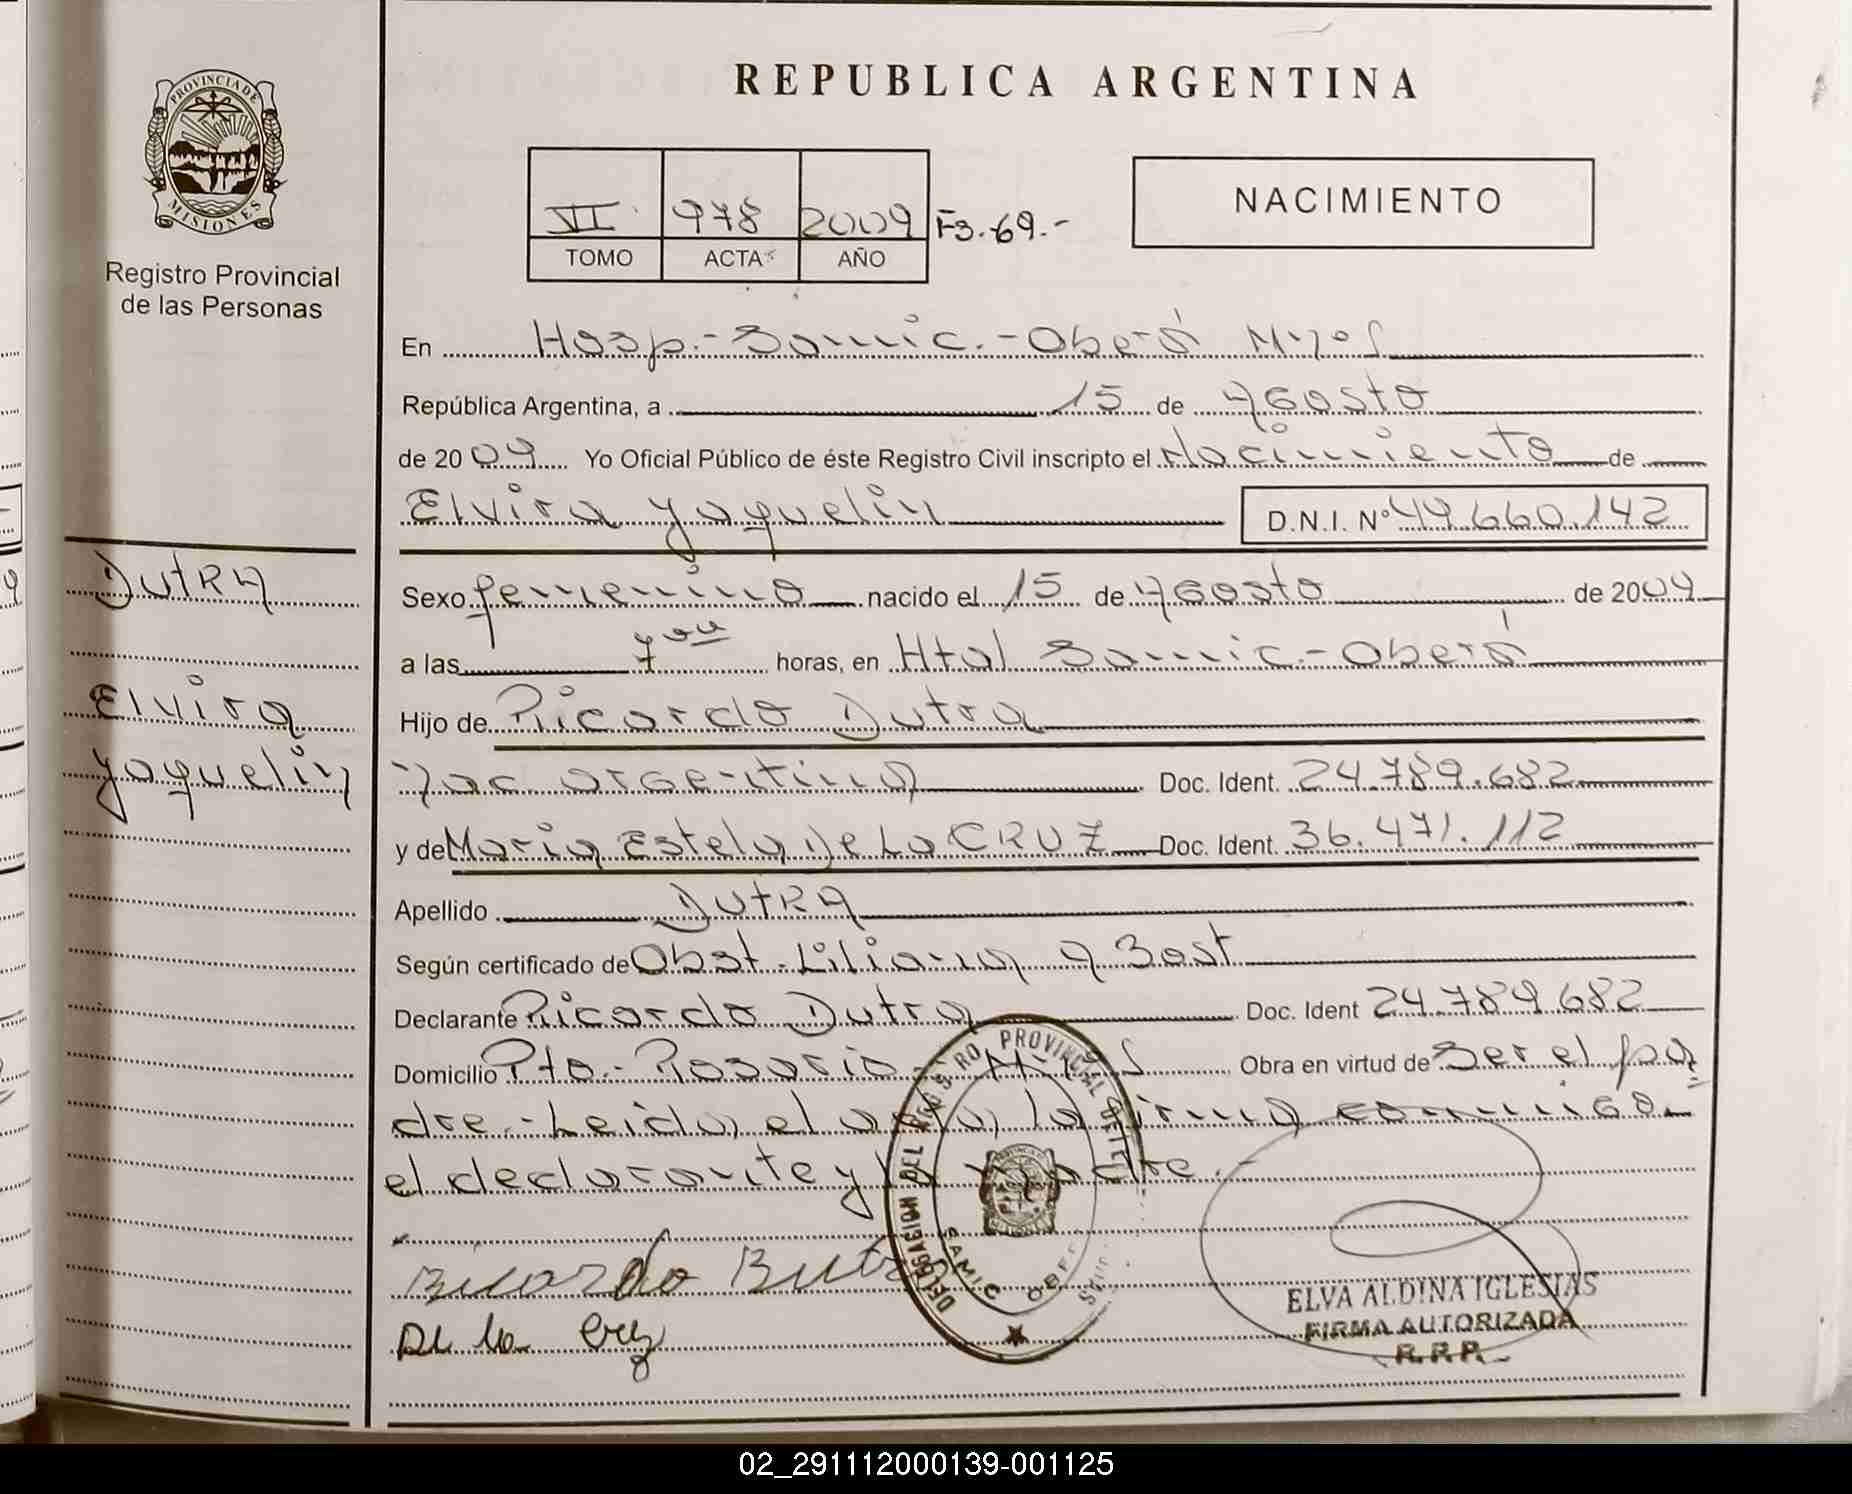 REPUBLICA ARGENTINA
PROVINCIA DE
MISIONES
Registro Provincial
de las Personas
VI 978 2009 F3.69.-
TOMO ACTA AÑO
NACIMIENTO
En Hosp.-Samic.-Oberá Mnes
República Argentina, a 15 de Agosto
de 2009 Yo Oficial Público de éste Registro Civil inscripto el Nacimiento de
Elvira Yaquelin D.N.I. Nº 49.660.142
DutRA
Elvira
Yaquelin
Sexo femenino nacido el 15 de Agosto de 2009
a las 7 horas, en Htal Samic.-Oberá
Hijo de Ricardo Dutra
Nac argentina Doc. Ident. 24.789.682
y de Maria Estela De La CRUZ Doc. Ident. 36.471.112
Apellido DutRA
Según certificado de Obst.Liliana A Bast
Declarante Ricardo Dutra Doc. Ident 24.789.682
Domicilio Pto.-Rosario- Obra en virtud de Ser el pa
dre.-Leida, el acta, la firma conmigo
el declarante y la madre.-
De la Cruz
DELEGACION DEL REGISTRO PROVINCIAL DE
SAMIC
ELVA ALDINA IGLESIAS
FIRMA AUTORIZADA
R.P.P.
02_291112000139-001125